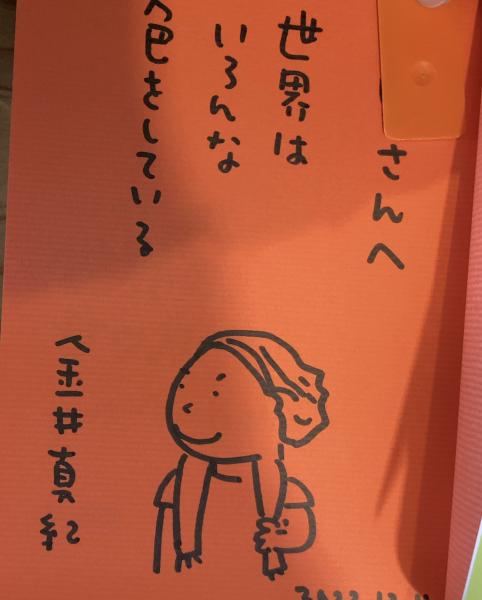 さんへ
世界は
いろんな
色をしている
金井真紀
2022.12.11